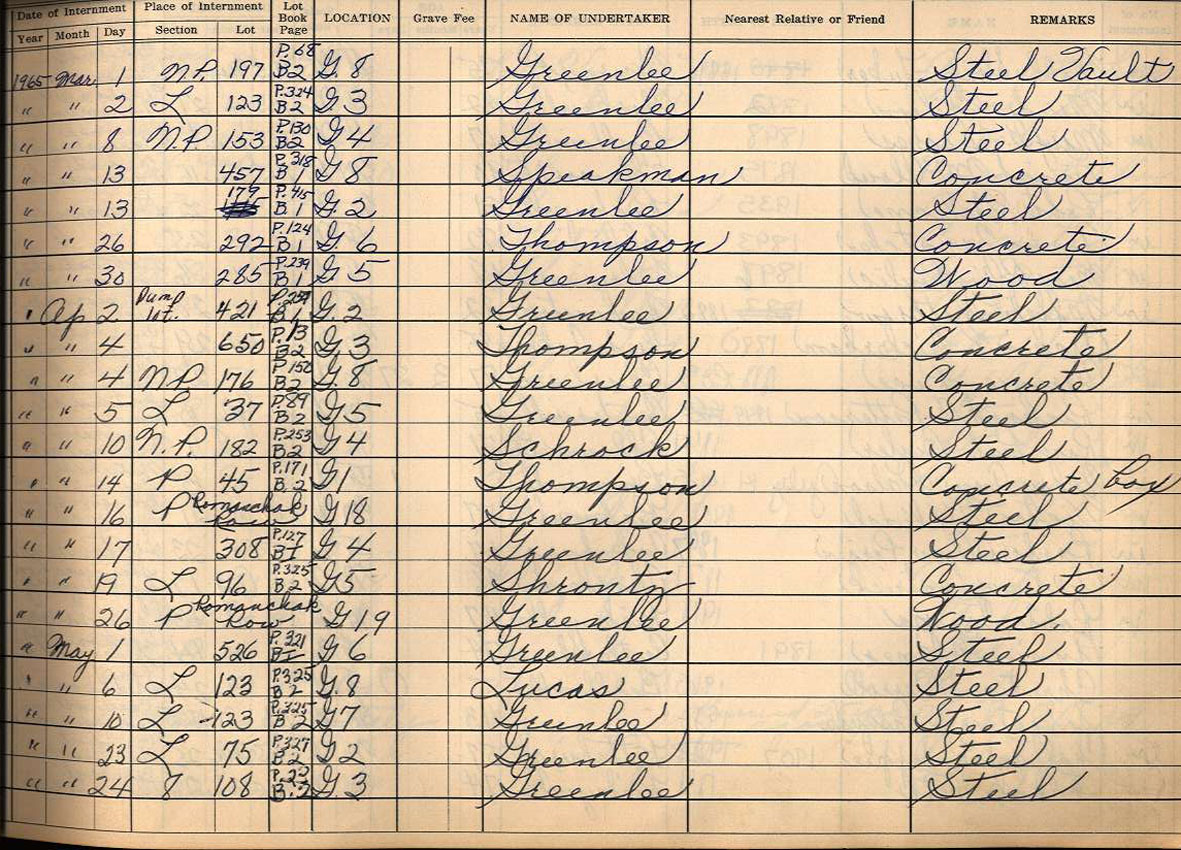 Date of Internment Place of Internment Lot Book Page LOCATION Grave Fee NAME OF UNDERTAKER Nearest Relative or Friend REMARKS
Year Month Day Section Lot
1965 Mar. 1 N.P. 197 P. 68 B2 G. 8 Greenlee Steel Vault
" " 2 L 123 P.324 B2 G. 3 Greenlee Steel
" " 8 N.P. 153 P.130 B2 G 4 Greenlee Steel
" " 13 457 P.318 B1 G 8 Speakman Concrete
" " 13 179 P.415 B.1 G. 2 Greenlee Steel
" " 26 292 P.124 B.1 G. 6 Thompson Concrete
" " 30 285 P.239 B1 G 5 Greenlee Wood
" Ap 2 421 G. 2 Greenlee Steel
" " 4 650 P.13 B2 G 3 Thompson Concrete
" " 4 N.P. 176 P.150 B2 G. 8 Greenlee Concrete
" " 5 L 37 P.89 B2 G 5 Greenlee Steel
" " 10 N.P. 182 P.253 B2 G 4 Schrock Steel
" " 14 P 45 P.171 B.2 G 1 Thompson Concrete box
" " 16 P Romanchak Row G 18 Greenlee Steel
" " 17 308 P.127 B1 G 4 Greenlee Steel
" " 19 L 96 P.325 B2 G 5 Shrontz Concrete
" " 26 P Romanchak Row G 19 Greenlee Wood.
" May 1 526 P.321 B1 G 6 Greenlee Steel
" " 6 L 123 P.325 B2 G. 8 Lucas Steel
" " 10 L 123 P.325 B2 G 7 Greenlee Steel
" " 23 L 75 P.327 B2 G 2 Greenlee Steel
" " 24 8 108 B.2 G. 3 Greenlee Steel